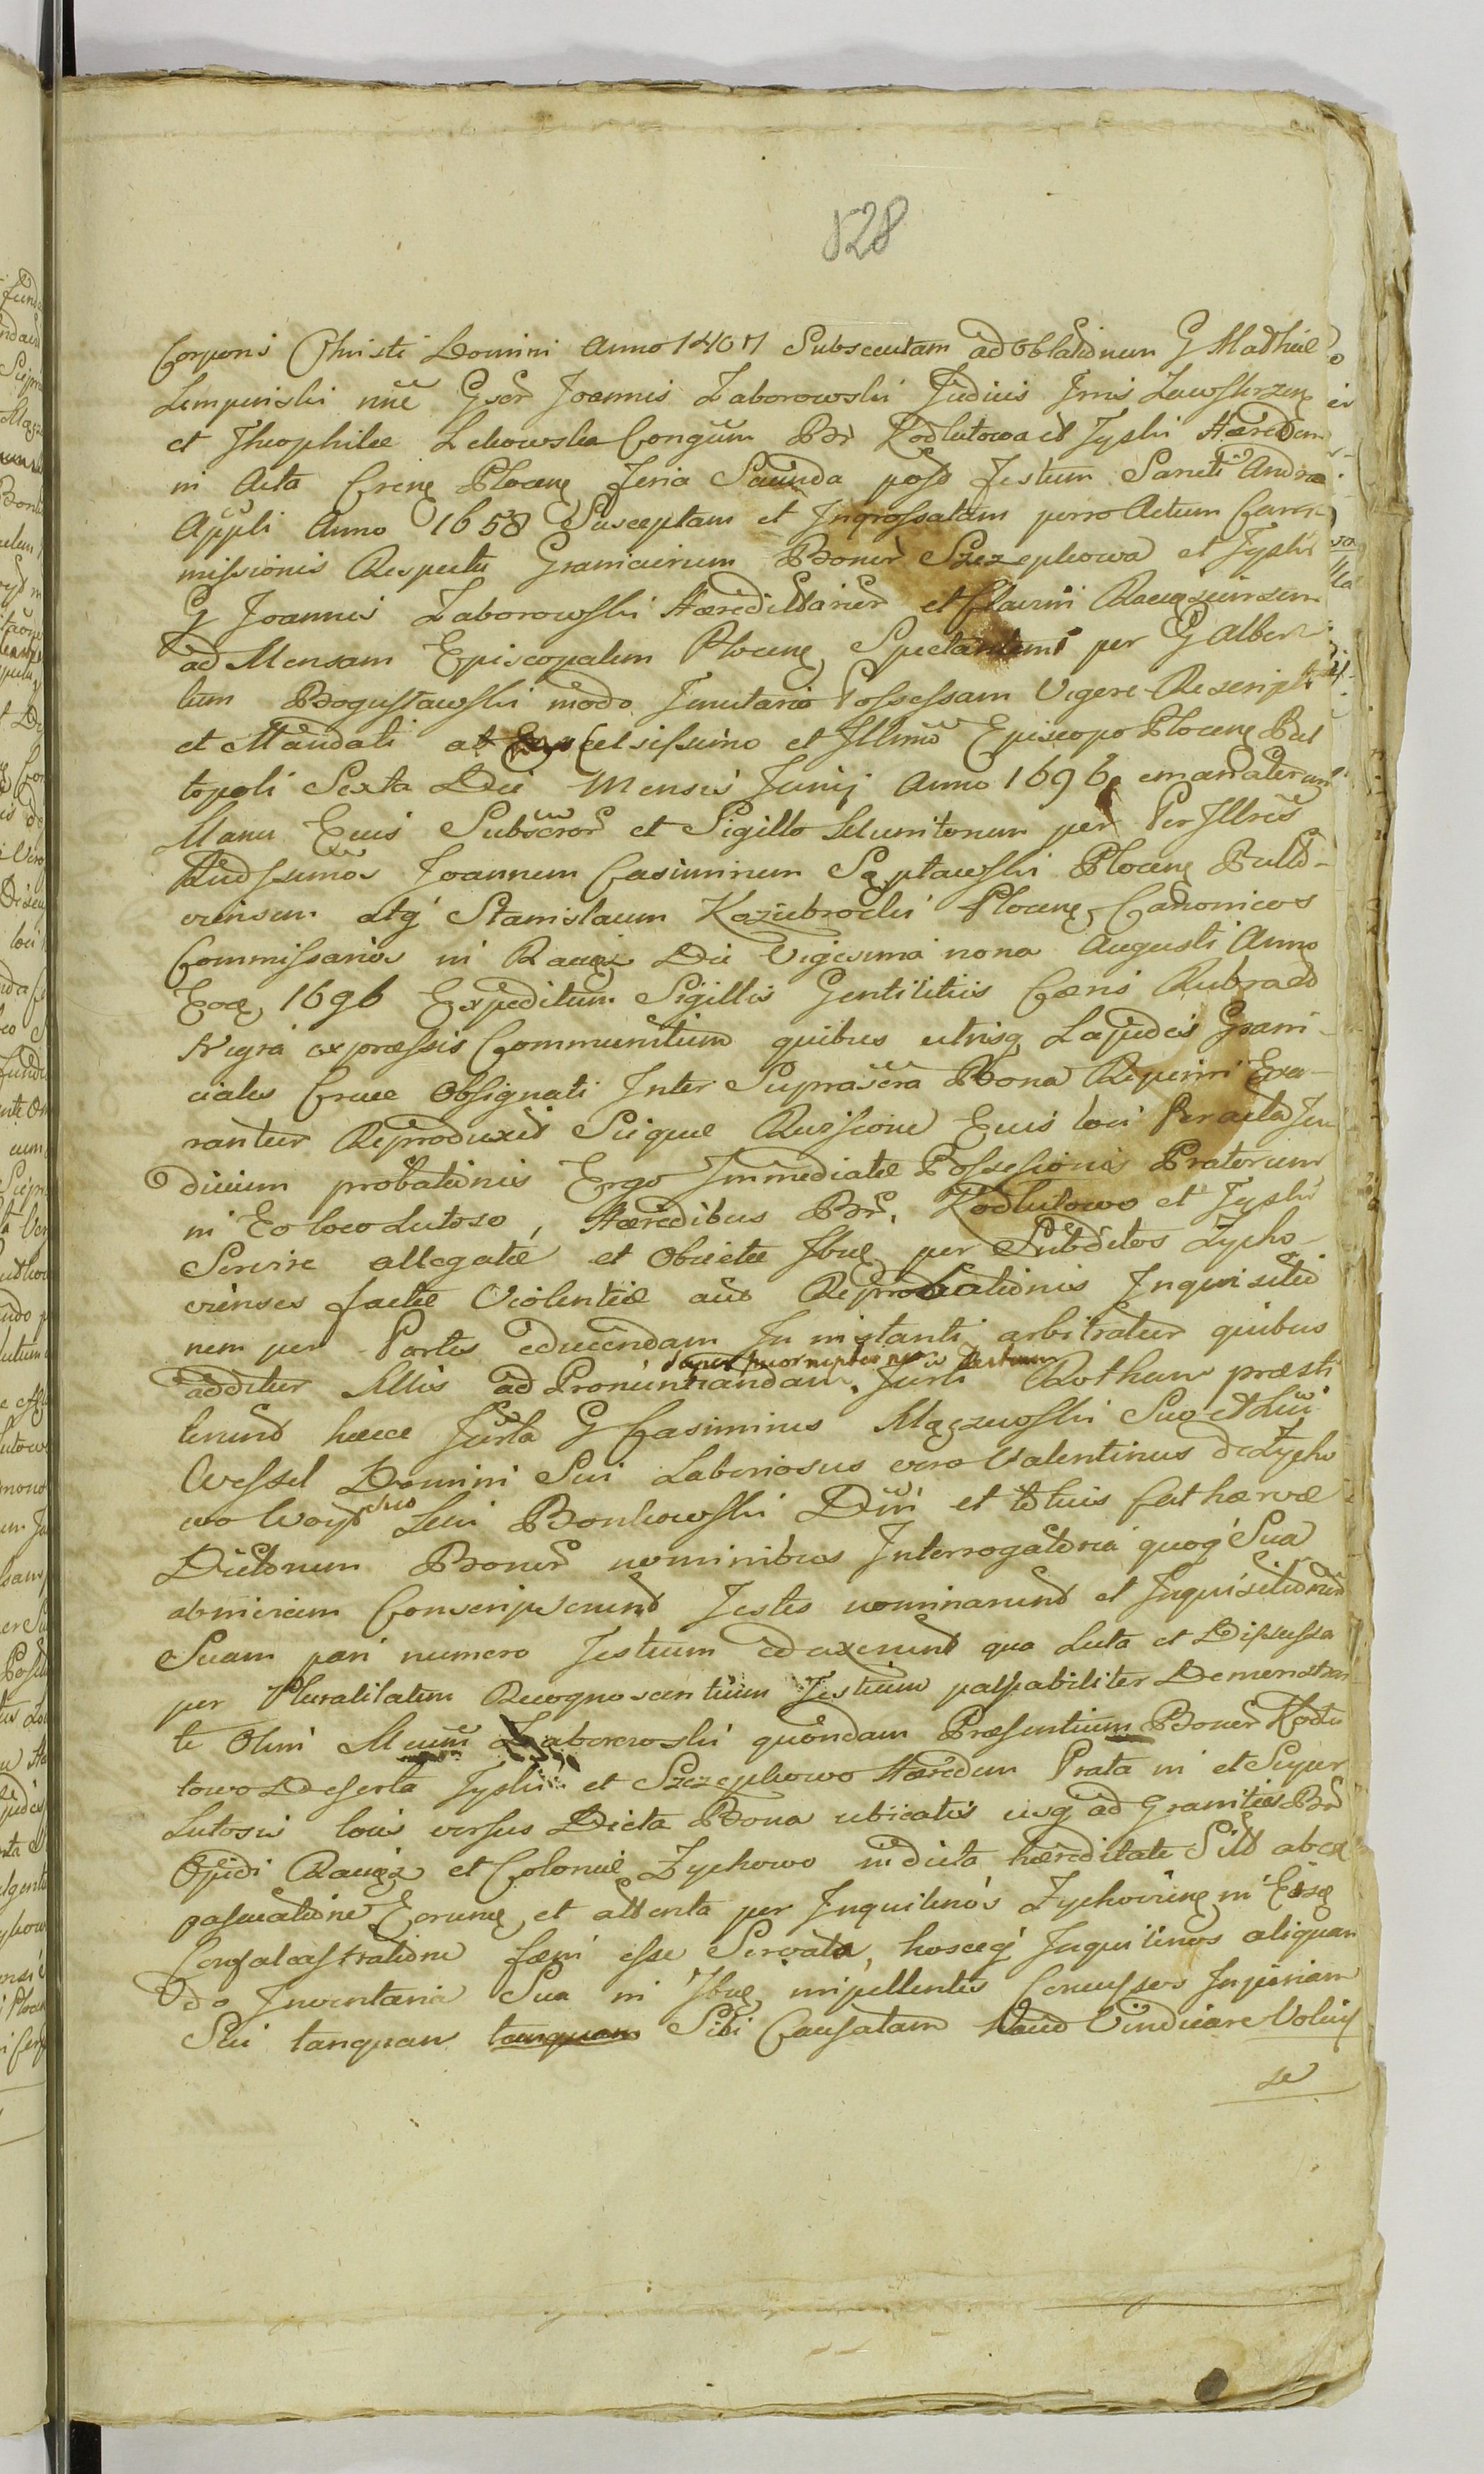 828
Corporis Christi Domini Anno 1407 Subsecutam ad Oblationem G Mathiæ
Lempinski nõe Gsor Joannis Zaborowski Judicis Trris Zawskrzen
et Theophilæ Lekowska Congum Br Kodlutowa et Tyski Hæredum
in Acta Crene Plocens Feria Secunda post Festum Sancti Andreæ
Appli Anno 1658 Susceptam et Ingrossatam porro Actum Com
missionis Respectu Graniciorum Bonor Szczepkowa et Tyski
G Joannis Zaborowski Hæreditarior et Clavim Raciązinensem
ad Mensam Episcopalem Plocens Spectantem per G Alber
tum Bogustawski modo Tenutario Possessam Vigere Rescripti
et Mandati ab Celsissimo et Illmo Episcopo Plocens Pul
topoli Sexta Die Mensis Junij Anno 1696 emanatorum
Manu Ejus Subscror et Sigillo Munitorum per Per Illres
Rndssimos Joannem Casimirum Saptawski Plocens Pulto-
viensem atq Stanislaum Koziebrodzki Plocens Canonicos
Commissarios in Raciąż Die Vigesima nona Augusti Anno
Eoẽ 1696 Expeditum Sigillis Gentilitiis Cæris Rubra et
Nigra expressis Communitum quibus utrisq Lapides Grani-
ciales Cruce Obsignati Inter Suprascra Bona Reperiri Exa-
rantur Reproduxit Sicque Revisione Ejus loci Peracta Ju
dicium probationis Ergo Immediatæ Possessionis Pratorum
in Eo loco Lutoso, Hæredibus Br. Kodlutowo et Tyski
Servire allegatæ et Objectæ Ibis per Subditos Zycho-
vienses factæ Violentiæ aut Reprobationis Inquisitio
nem per Partes educendam In instanti arbitratur quibus
additur Illis ad Pronuntiandam Jurti Rotham præsti
terunt hæcce Jurta G Casimirus Mączewski Suo et
Wessel Domini Sui Laboriosus vero Valentinus de Zycho
wo Woyt suo Sui Bonkowski Dni et totius Cathærvæ
Dictorum Bonor nominibus Interrogatoria quoq Sua
abinvicem Conscripserunt Testes nominarunt et Inquisitionem
Suam pari numero Testium eduxerunt qua Luta et Discussa
per Pluralitatem Recognoscentium Testium palpabiliter Demonstran
te Olim Zaborowski quondam Præsentium Bonor Kodlu
towo Deserta Tyski et Szczepkowo Hæredem Prata in et Super
Lutosis locis versus Dicta Bona ubicatis usq ad Granities Br
Opidi Raciąż et Coloniæ Zychowo in dicta hæreditate Sita ab ex
pascuatione Eorunq et attenta per Inquilinos Zychoviens in Eisq
Confalcastratione fæni esse Servata, hosceq Inquilinos aliquan
do Inventaria Sua in Ibiq impellentes Concussos Injuriam
Sui tanquam tanquam Sibi Causatam Haud Vindicare Volvis
se